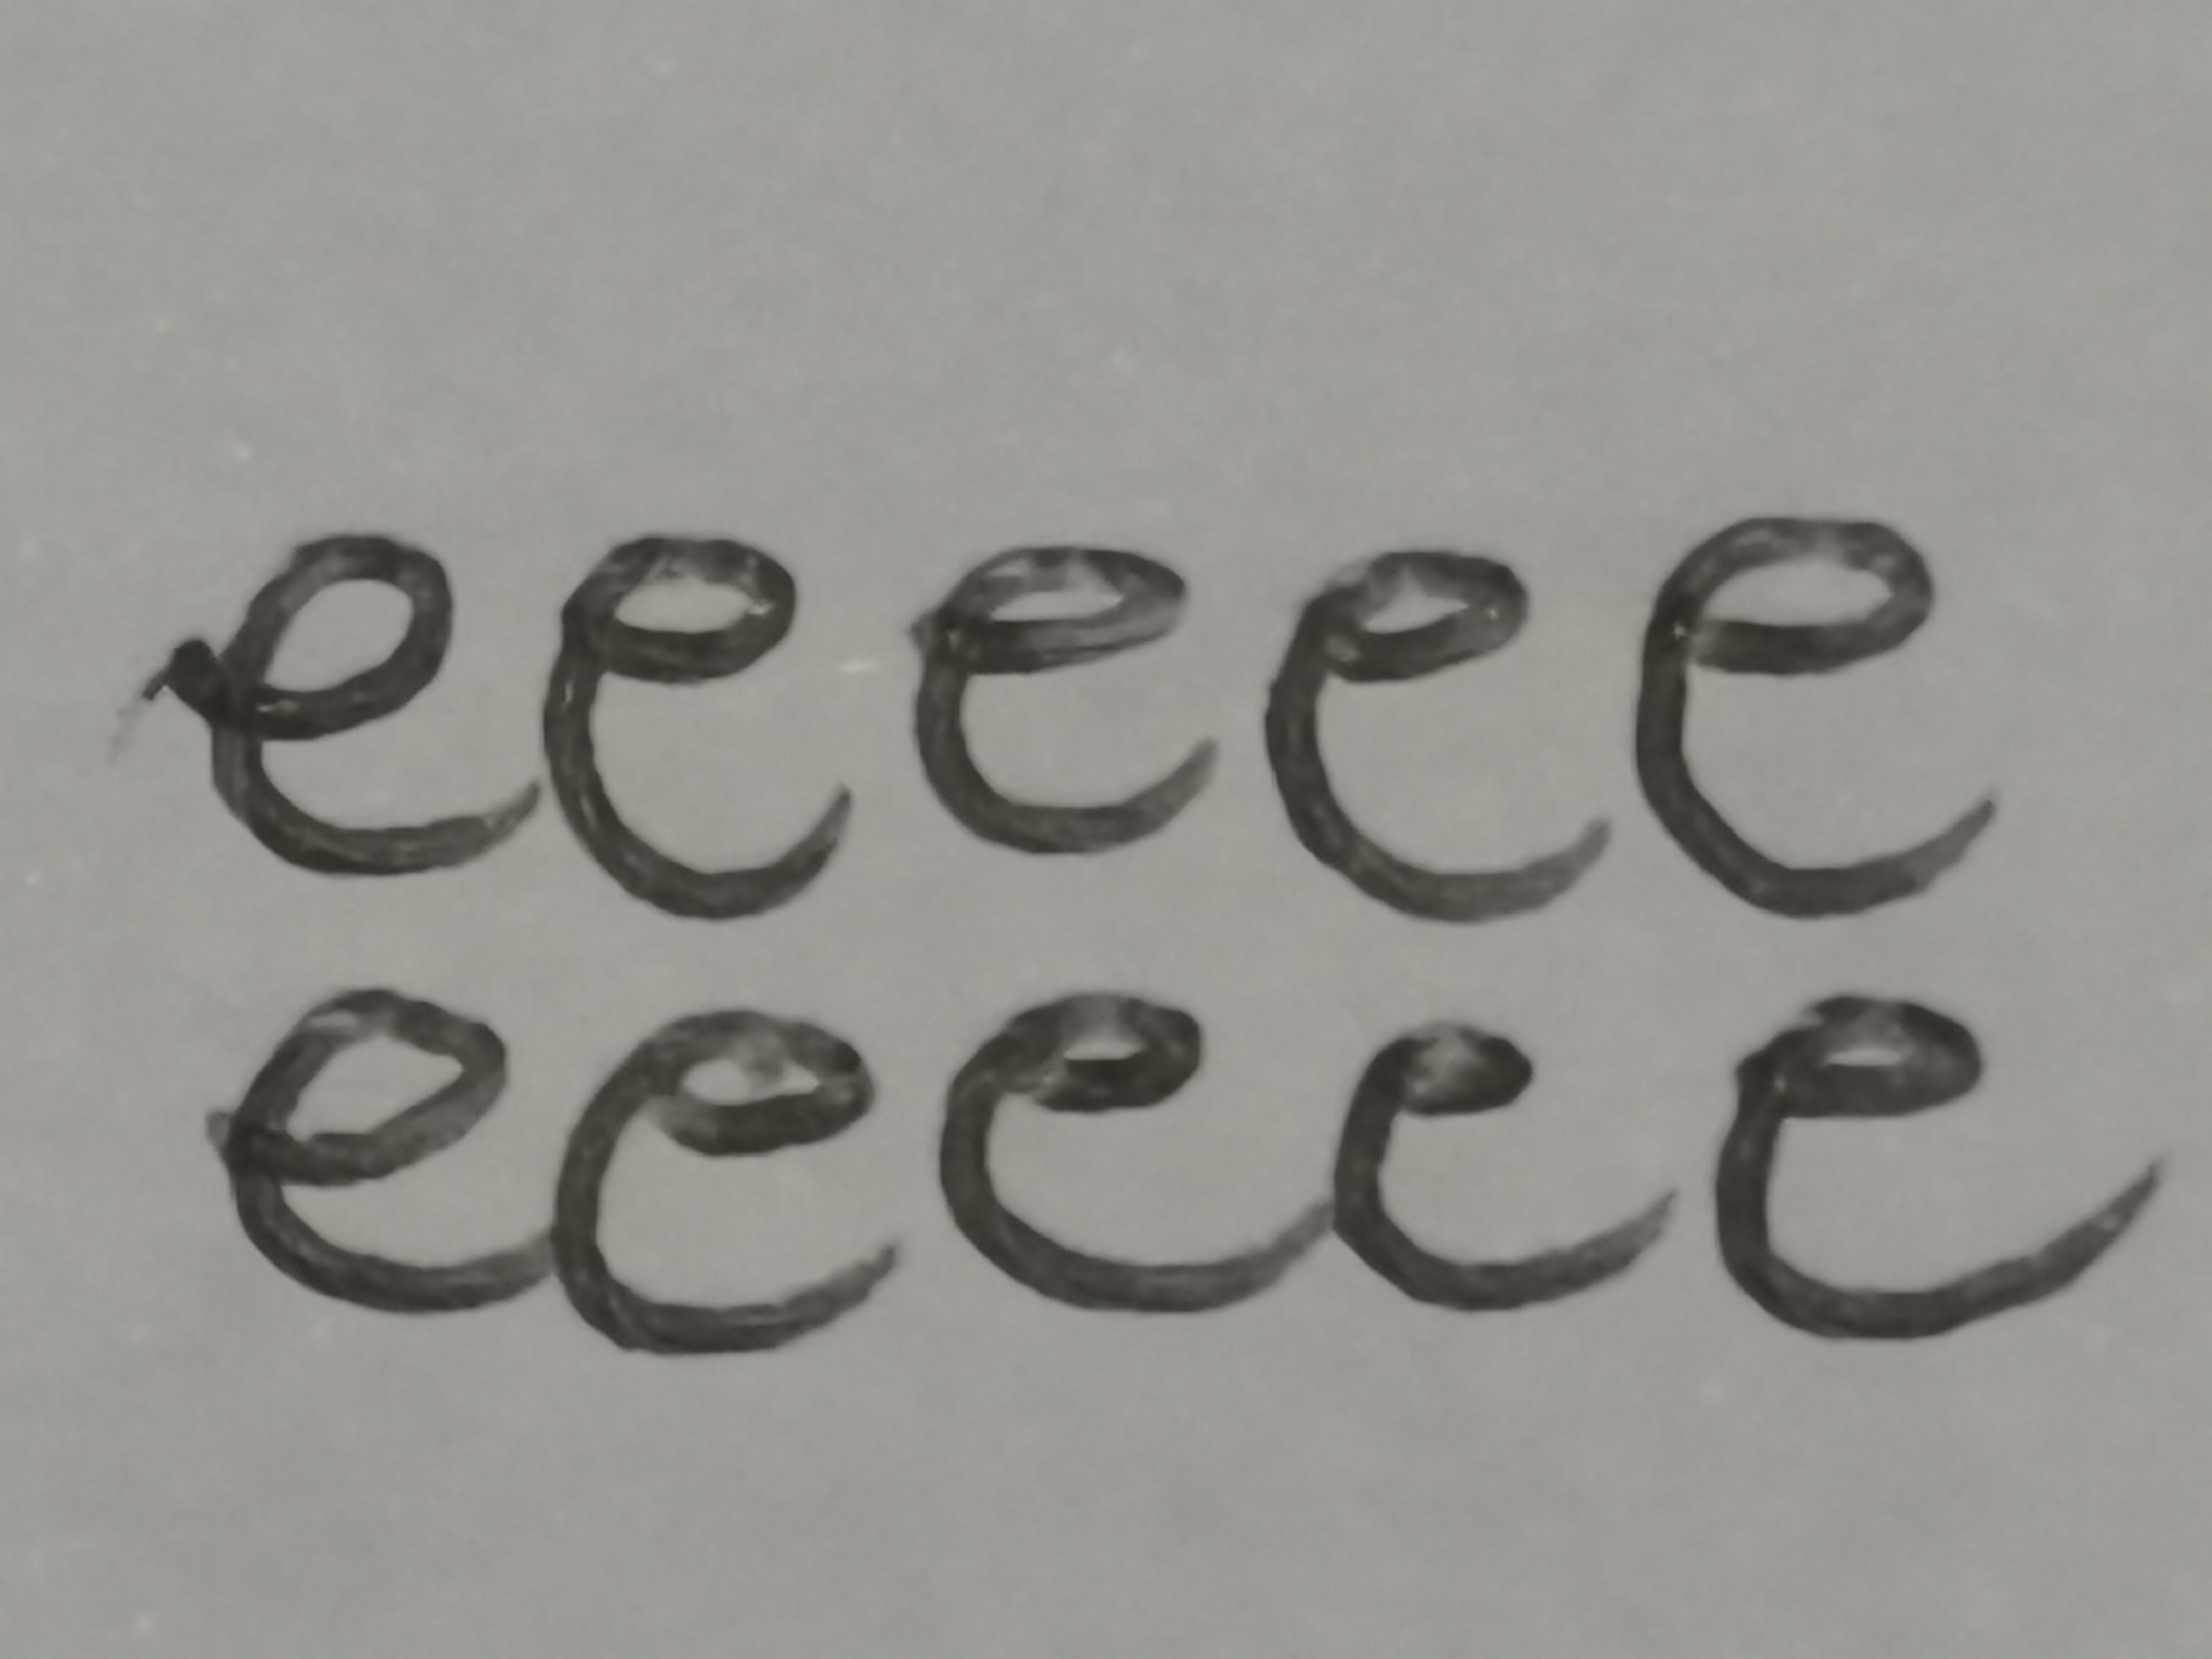 e e e e e
e e e e e